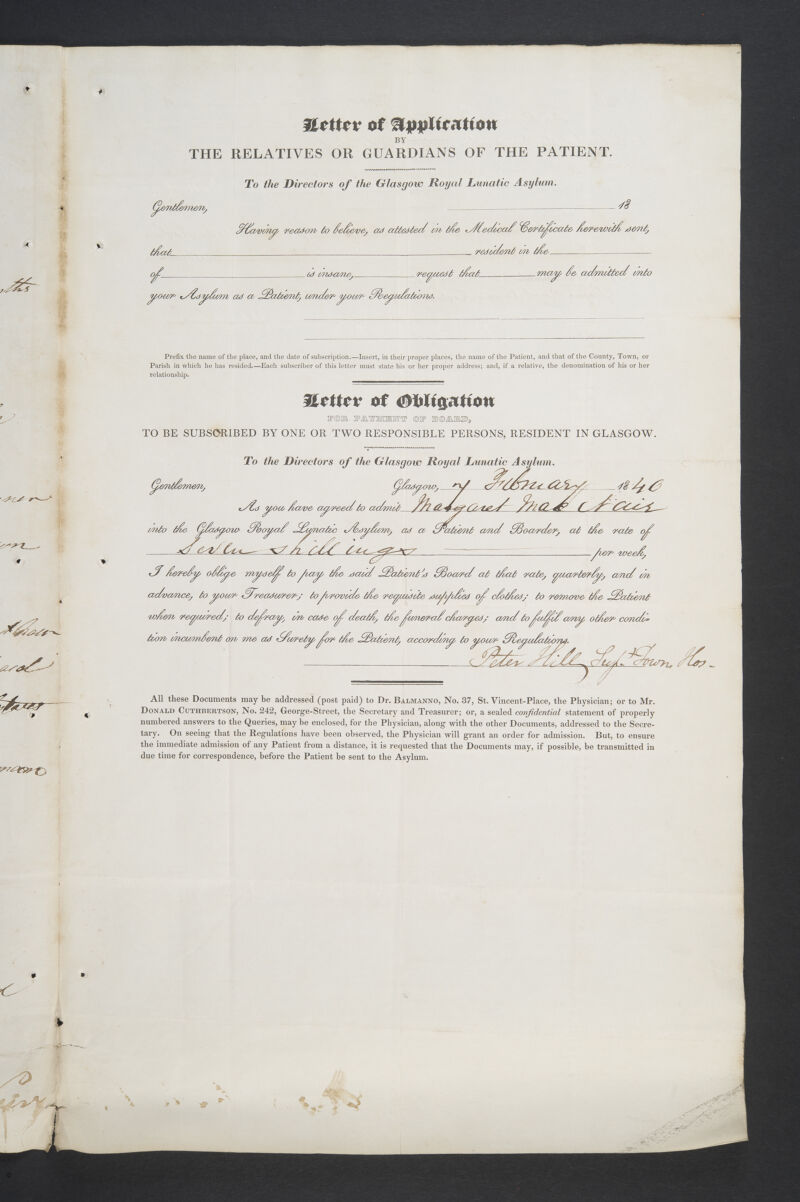 Letter of Application
BY
THE RELATIVES OR GUARDIANS OF THE PATIENT.
To the Directors of the Glasgow Royal Lunatic Asylum.
Gentlemen, 18
Having reason to believe, as attested in the Medical Certificate herewith sent,
that resident in the
of is insane, request that may be admitted into
your Asylum as a Patient, under your Regulations.
Prefix the name of the place, and the date of subscription.—Insert, in their proper places, the name of the Patient, and that of the County, Town, or
Parish in which he has resided.—Each subscriber of this letter must state his or her proper address; and, if a relative, the denomination of his or her
relationship.
Letter of Obligation
FOR PAYMENT OF BOARD,
TO BE SUBSCRIBED BY ONE OR TWO RESPONSIBLE PERSONS, RESIDENT IN GLASGOW.
To the Directors of the Glasgow Royal Lunatic Asylum.
Gentlemen, Glasgow, 7 February 1840
As you have agreed to admit Margaret Mac Nair
into the Glasgow Royal Lunatic Asylum, as a Patient and Boarder, at the rate of
Seven Shillings per week,
I hereby oblige myself to pay the said Patient's Board at that rate, quarterly, and in
advance, to your Treasurer; to provide the requisite supplies of clothes; to remove the Patient
when required; to defray, in case of death, the funeral charges; and to fulfil any other condi-
tion incumbent on me as Surety for the Patient, according to your Regulations.
Peter Hill Supt Town Hos-
All these Documents may be addressed (post paid) to Dr. BALMANNO, No. 37, St. Vincent-Place, the Physician; or to Mr.
DONALD CUTHBERTSON, No. 242, George-Street, the Secretary and Treasurer; or, a sealed confidential statement of properly
numbered answers to the Queries, may be enclosed, for the Physician, along with the other Documents, addressed to the Secre-
tary. On seeing that the Regulations have been observed, the Physician will grant an order for admission. But, to ensure
the immediate admission of any Patient from a distance, it is requested that the Documents may, if possible, be transmitted in
due time for correspondence, before the Patient be sent to the Asylum.